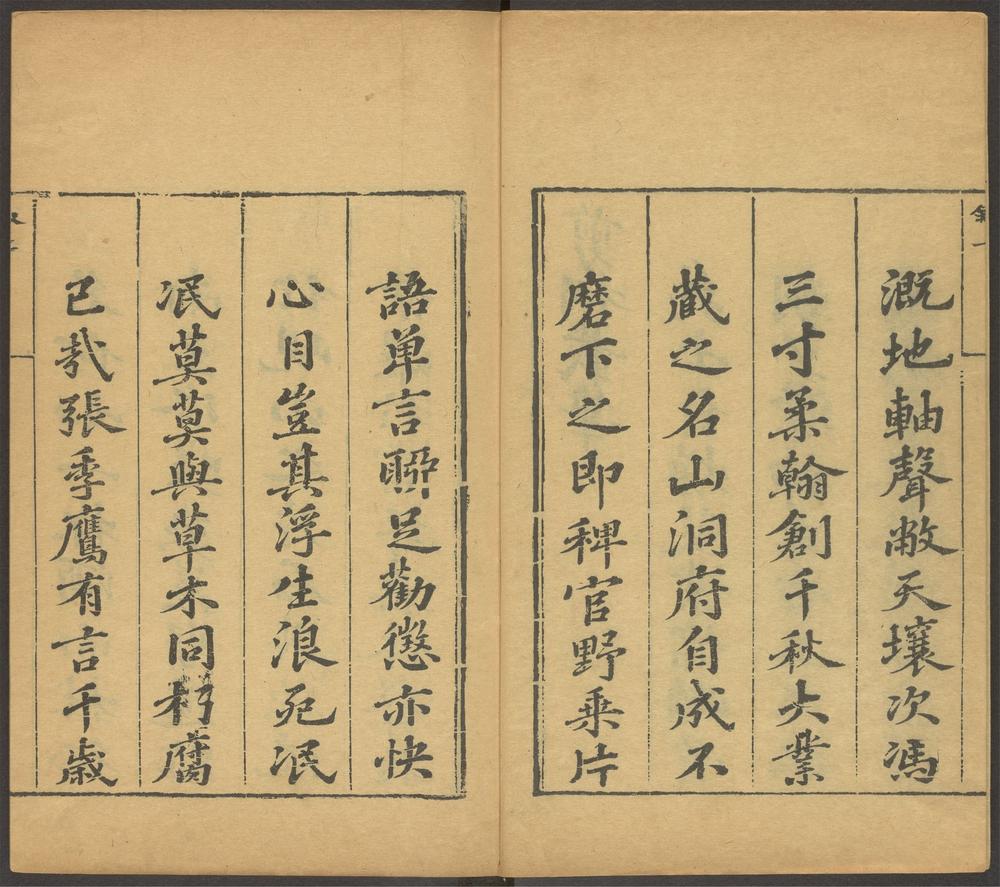 溉地軸聲敝天壤次馮
三寸柔翰創千秋大業
藏之名山洞府自成不
磨下之即稗官野乗片
語单言聊足勸懲亦快
心目豈其浮生浪死泯
泯莫莫與草木同朽腐
已哉張季鷹有言千歳